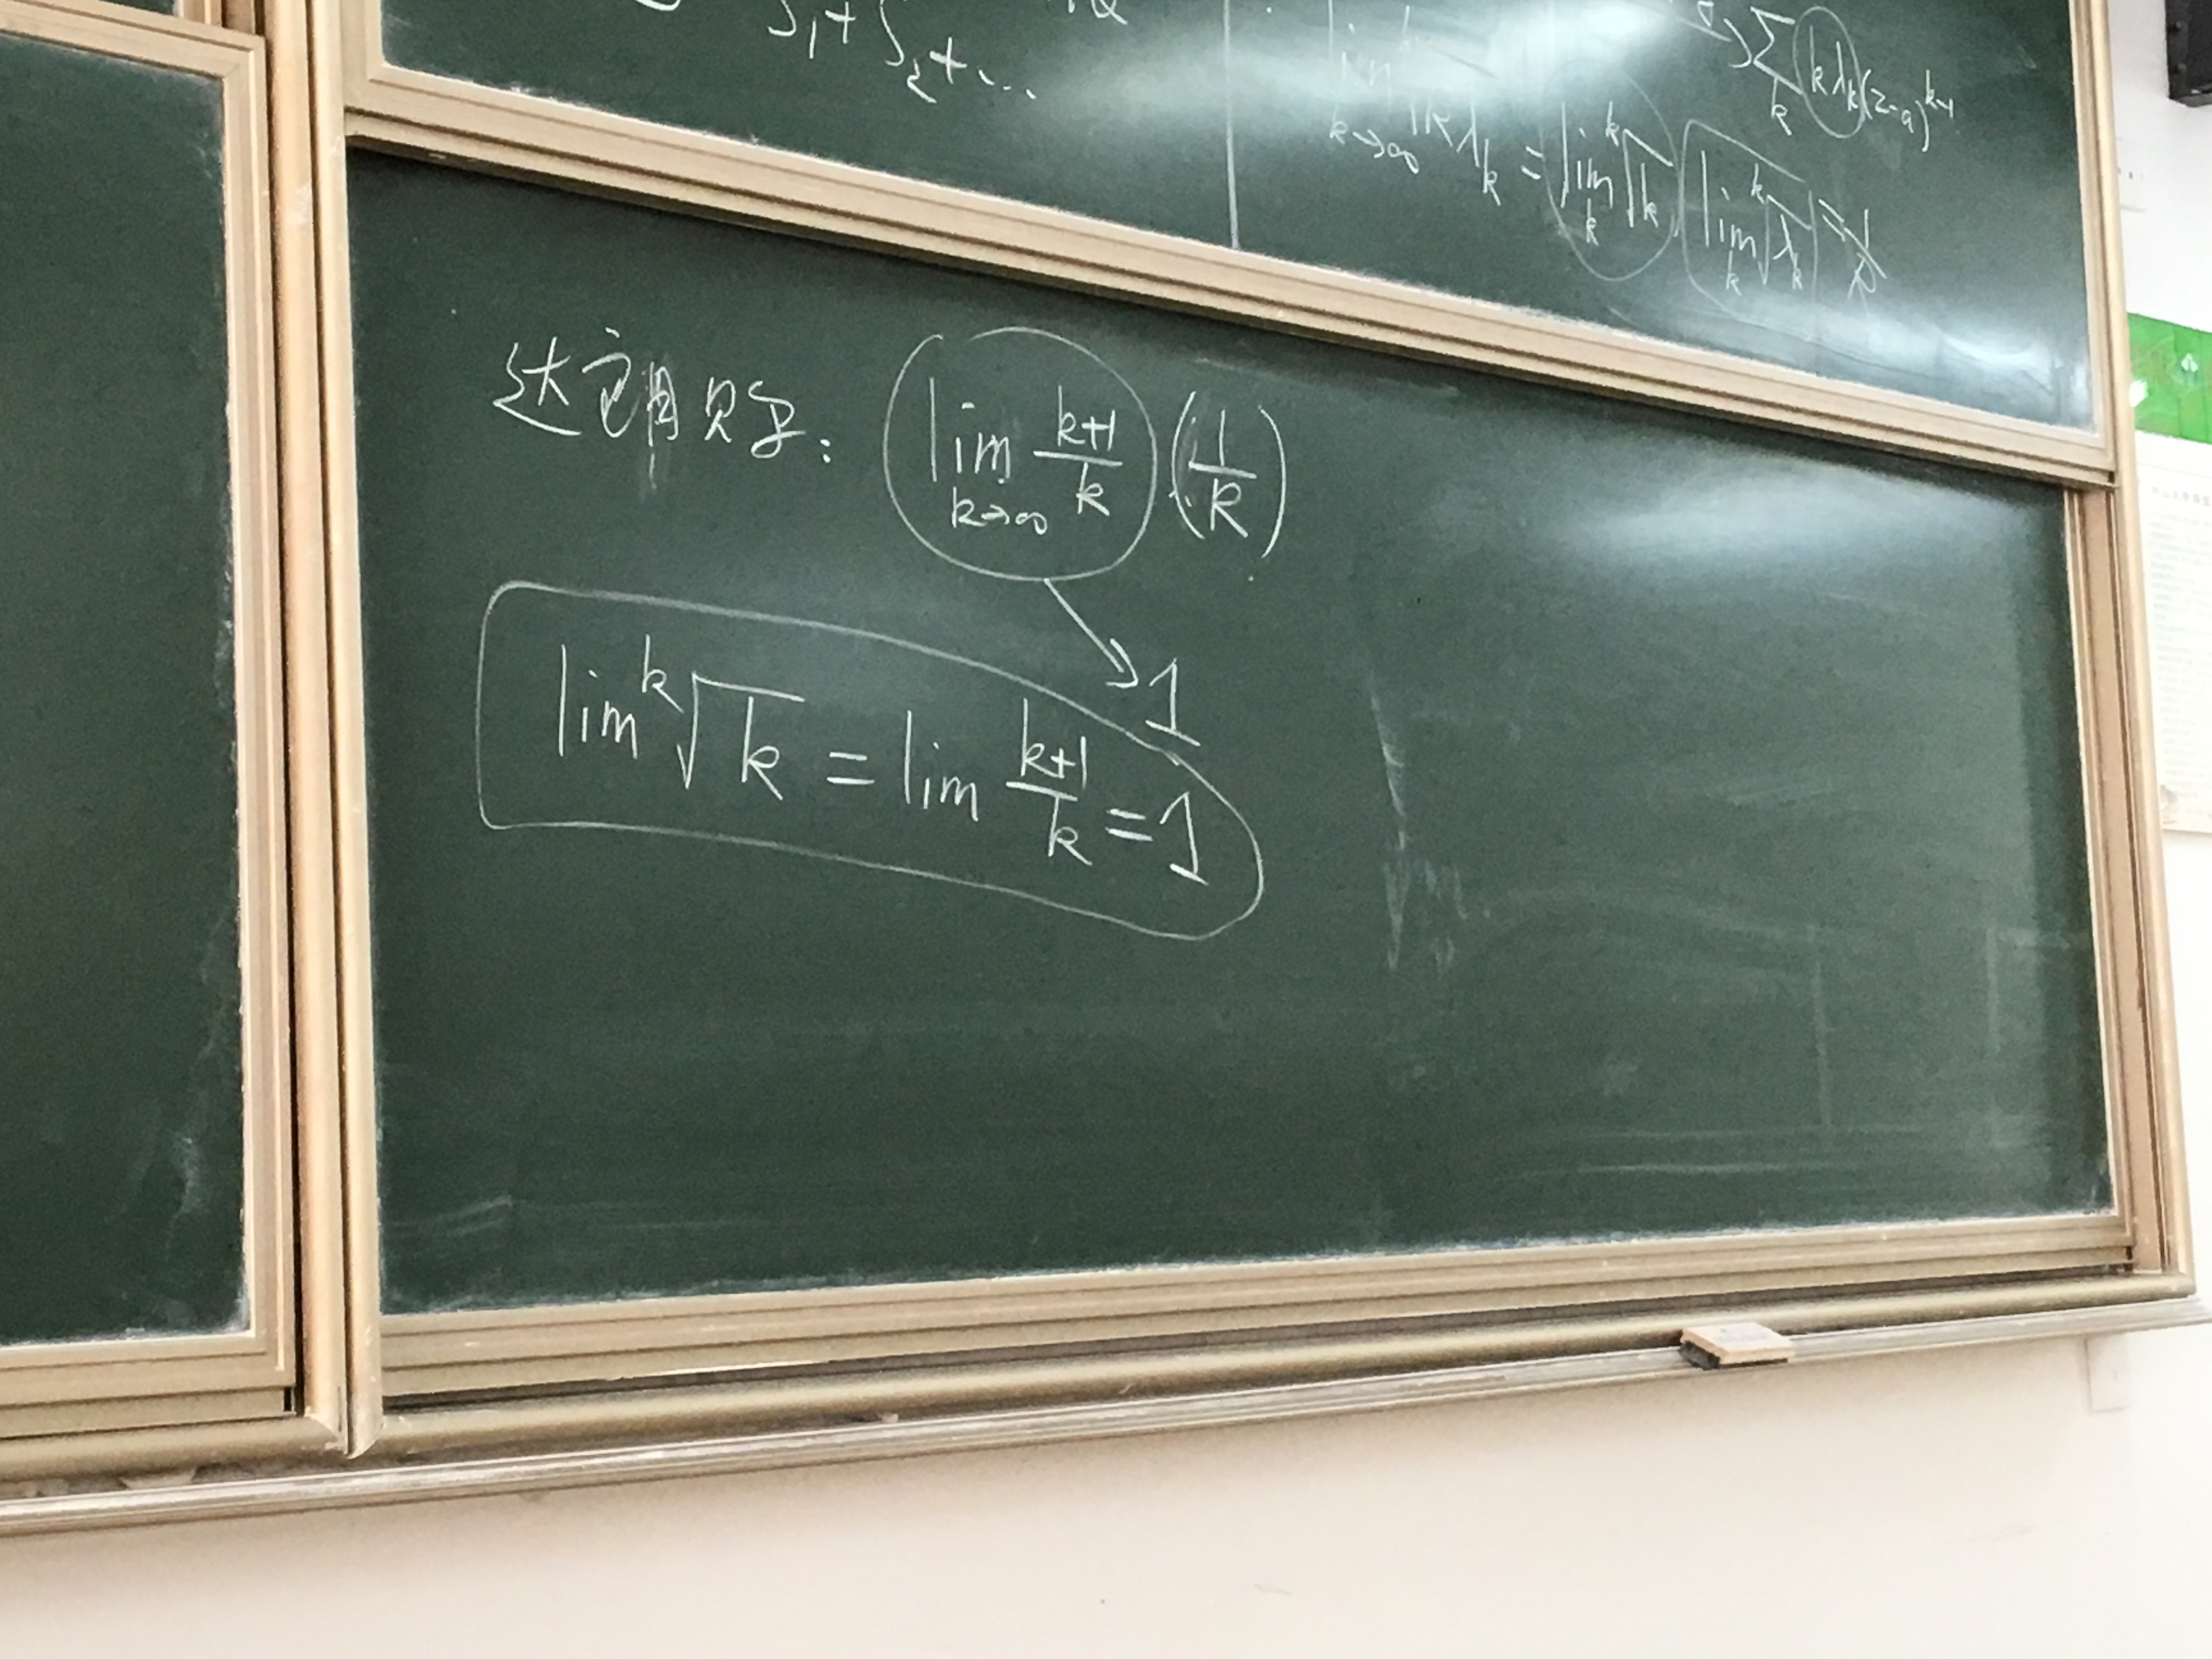 S₁+S₂+...
∑ₖ kλₖ(z-a)ᵏ⁻¹
lim k→∞ ᵏ√kλₖ = limₖ ᵏ√k limₖ ᵏ√λₖ = 1/R
达朗贝尔: lim k→∞ (k+1)/k (1/R)
1
lim ᵏ√k = lim (k+1)/k = 1